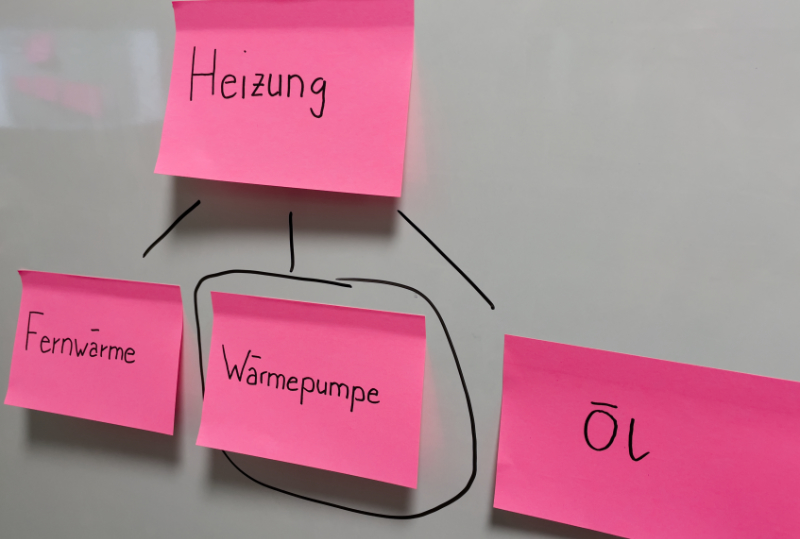 Heizung
Fernwärme
Wärmepumpe
Öl